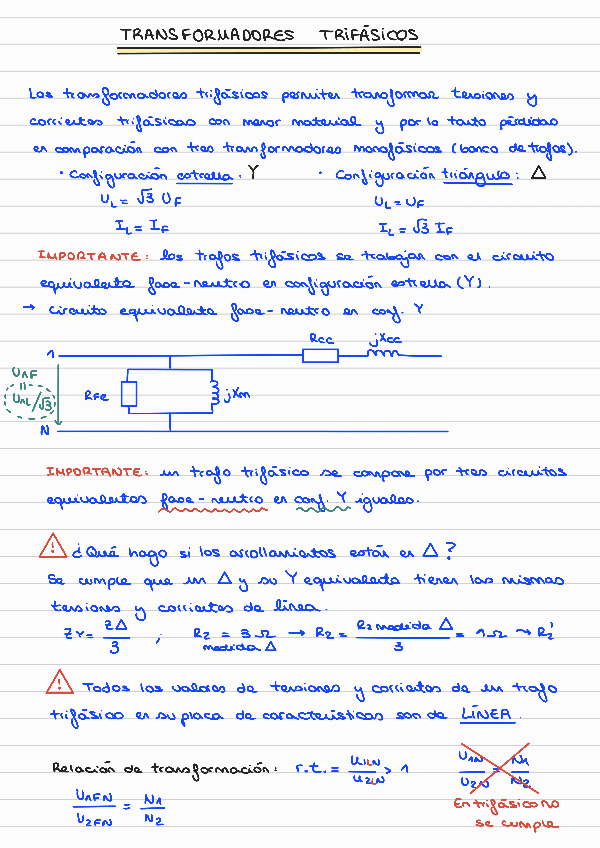 TRANSFORMADORES TRIFÁSICOS
Los transformadores trifásicos permiten transformar tensiones y
corrientes trifásicas con menor material y por lo tanto pérdidas
en comparación con tres transformadores monofásicos (banco de trafos).
· Configuración estrella: Y
· Configuración triángulo: Δ
U_L = √3 U_F
U_L = U_F
I_L = I_F
I_L = √3 I_F
IMPORTANTE: los trafos trifásicos se trabajan con el circuito
equivalente fase-neutro en configuración estrella (Y).
→ Circuito equivalente fase-neutro en conf. Y
Rcc jXcc
1
U1F
=
U1L/√3
RFe
jXm
N
IMPORTANTE: un trafo trifásico se compone por tres circuitos
equivalentes fase-neutro en conf. Y iguales.
⚠ ¿Qué hago si los arrollamientos están en Δ?
Se cumple que un Δ y su Y equivalente tienen las mismas
tensiones y corrientes de línea.
ZY = ZΔ/3 ; R2 medida Δ = 3 Ω → R2 = R2 medida Δ/3 = 1 Ω ⤳ R2'
⚠ Todos los valores de tensiones y corrientes de un trafo
trifásico en su placa de características son de LÍNEA.
Relación de transformación: r.t. = U1LN/U2LN > 1
U1N/U2N = N1/N2
U1FN/U2FN = N1/N2
En trifásico no
se cumple